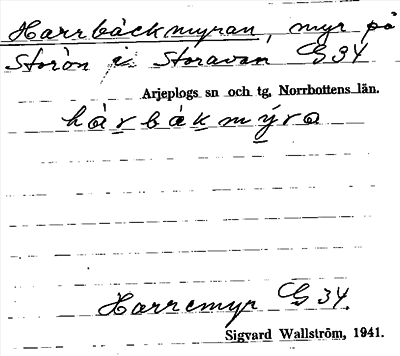 Harrbäckmyran, myr på
Storön i Storavan G 34
Arjeplogs sn och tg, Norrbottens län.
hàrbäkmýra
Harremyr G 34.
Sigvard Wallström, 1941.